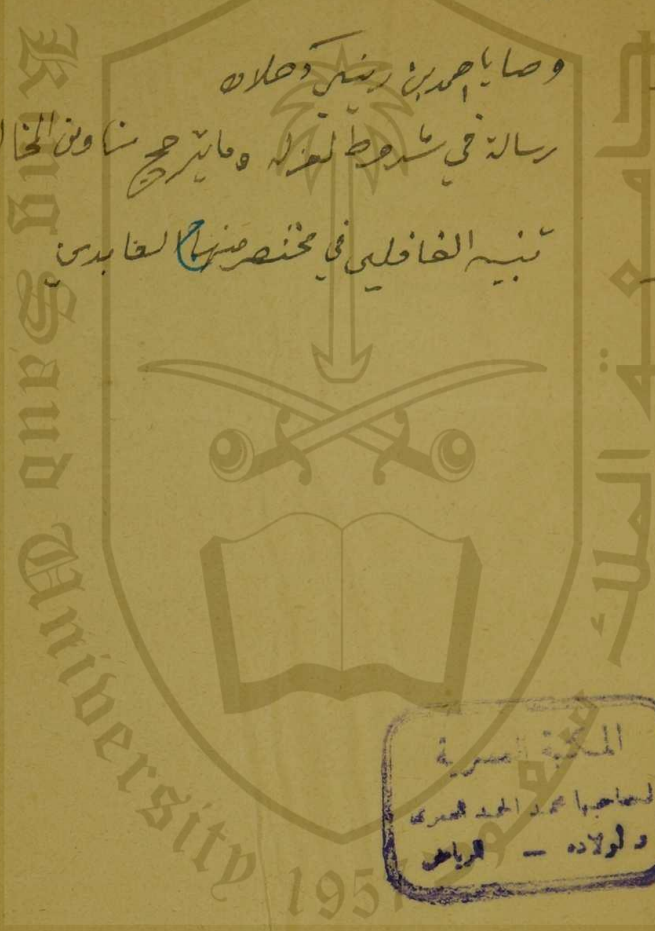 وصايا احمد بن زيني دحلان
رسالة في شروط لعزله وما يترجح منا ومن
تنبيه الغافلين في مختصر منهاج العابدين
King Saud University 1957
جامعة الملك سعود
المكتبة
لصاحبها محمد الحمد
واولاده – الرياض